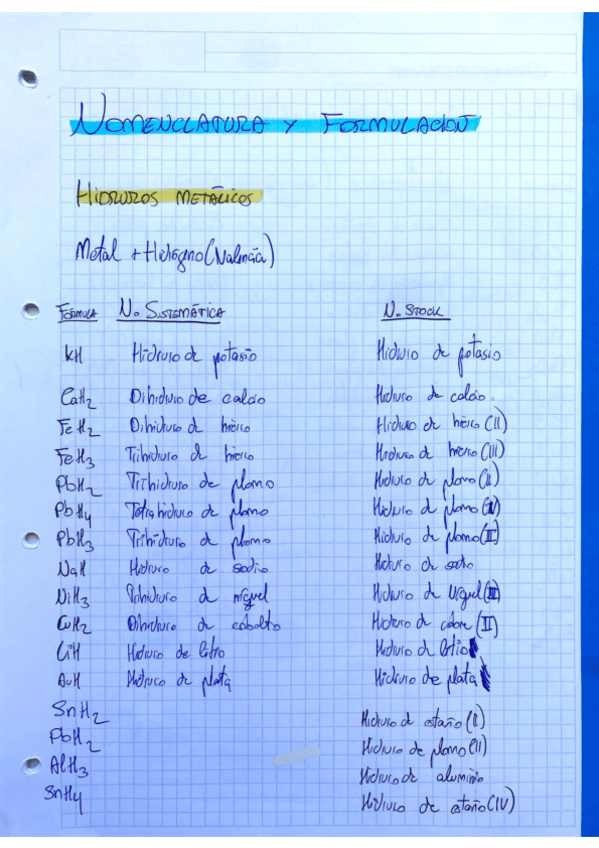 NOMENCLATURA Y FORMULACION
HIDRUROS METÁLICOS
Metal + Hidrógeno (Valencia)
FÓRMULA N. SISTEMÁTICA N. STOCK
KH Hidruro de potasio Hidruro de potasio
CaH2 Dihidruro de calcio Hidruro de calcio.
FeH2 Dihidruro de hierro Hidruro de hierro (II)
FeH3 Trihidruro de hierro Hidruro de hierro (III)
PbH2 Trihidruro de plomo Hidruro de plomo (II)
PbH4 Tetrahidruro de plomo Hidruro de plomo (IV)
PbH3 Trihidruro de plomo Hidruro de plomo (II)
NaH Hidruro de sodio Hidruro de sodio
NiH3 de níquel Hidruro de (III)
CuH2 Dihidruro de cobalto Hidruro de cobre (II)
LiH Hidruro de litio Hidruro de litio
Hidruro de plata Hidruro de plata
SnH2 Hidruro de estaño
PbH2 Hidruro de plomo (II)
AlH3 Hidruro de aluminio
SnH4 Hidruro de estaño (IV)